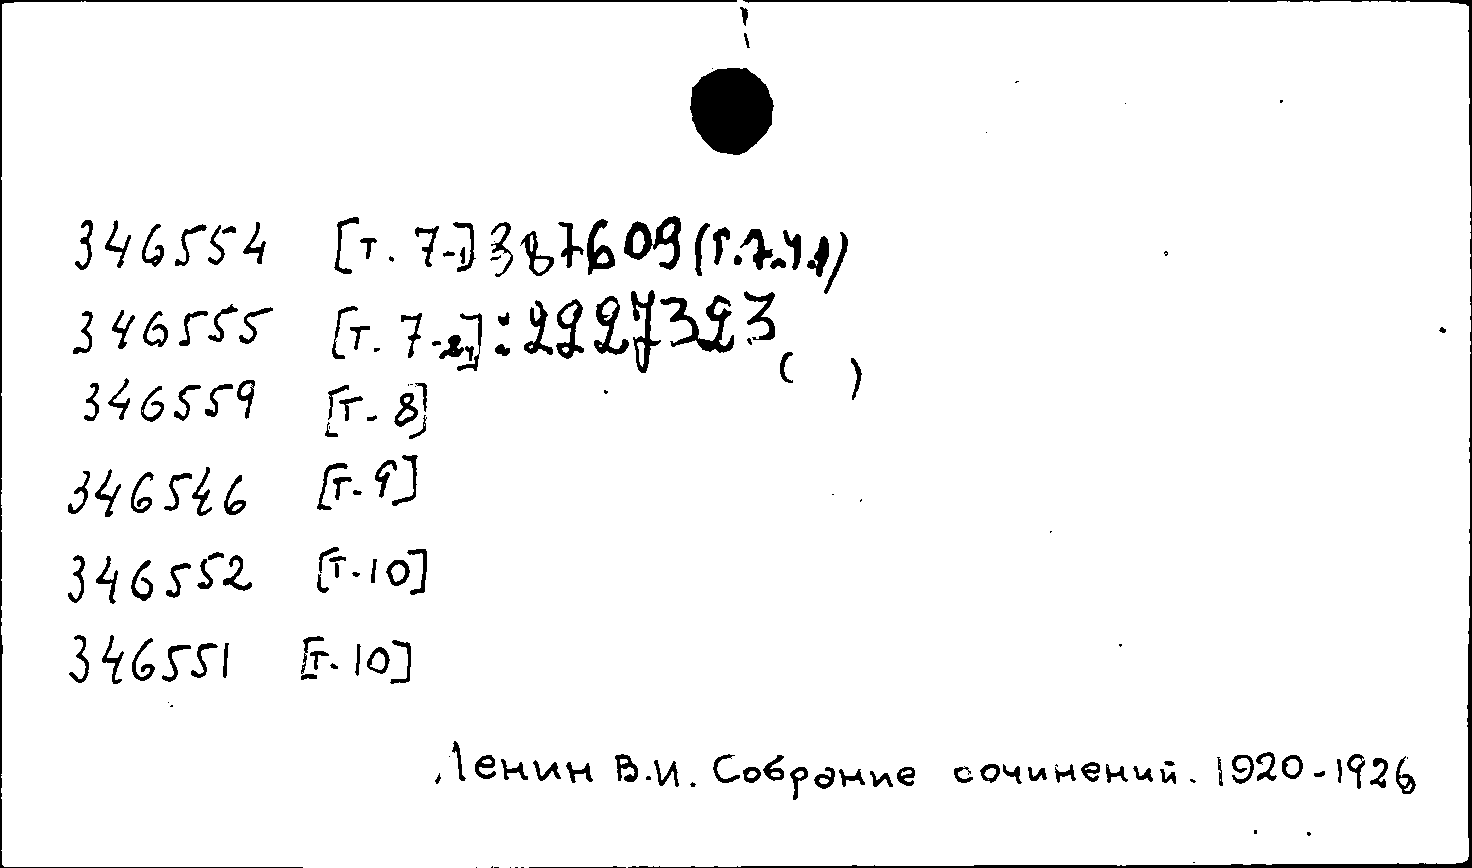 346554 [т. 7-1] 387609 (т.7.ч.1)
346555 [т. 7-2ч]: 2227323 ( )
346559 [т. 8]
346546 [т. 9]
346552 [т. 10]
346551 [т. 10]
Ленин В.И. Собрание сочинений. 1920-1926